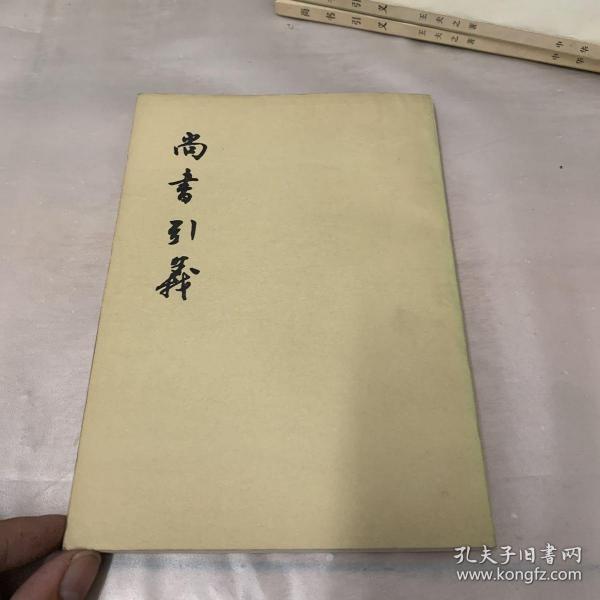 尚書引義
尚书引义 王夫之著 中华
书引义 王夫之著 中华
孔夫子旧書网
www.kongfz.com